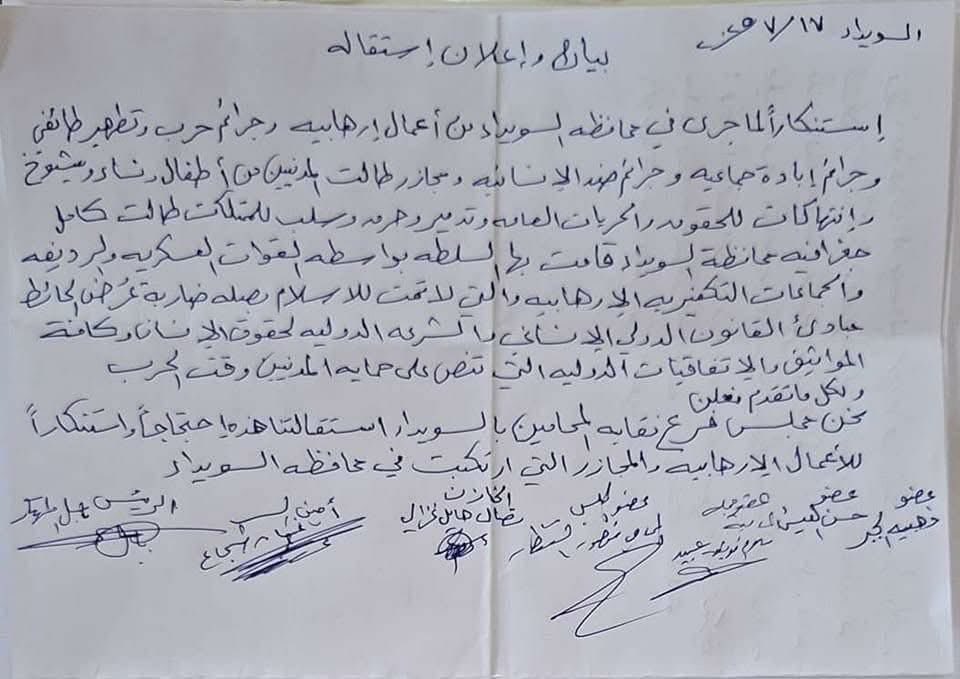 السويداء ١٧/٧
بيان وإعلان إستقاله
إستنكاراً لما جرى في محافظه السويداء من أعمال إرهابيه وجرائم حرب وتطهير طائفي
وجرائم إبادة جماعيه وجرائم ضد الإنسانيه ومجازر طالت المدنيين من أطفال ونساء وشيوخ
وإنتهاكات للحقوق والحريات العامه وتدمير وحرق وسلب للمتلكات طالت كامل
جغرافيه محافظة السويداء قامت بها السلطه بواسطه القوات العسكريه والرديفه
والجماعات التكفيريه الإرهابيه والتي لا تمت للاسلام بصله ضاربة عُرض الحائط
مبادئ القانون الدولي الإنساني والشرعه الدوليه لحقوق الإنسان وكافة
المواثيق والإتفاقيات الدوليه التي تنص على حمايه المدنيين وقت الحرب
ولكل ماتقدم نعلن
نحن مجلس فرع نقابه المحامين بالسويداء استقالتنا هذه إحتجاجاً واستنكاراً
للأعمال الإرهابيه والمجازر التي ارتكبت في محافظه السويداء
عضو عضو عضو المجلس الخازن أمين السر الرئيس